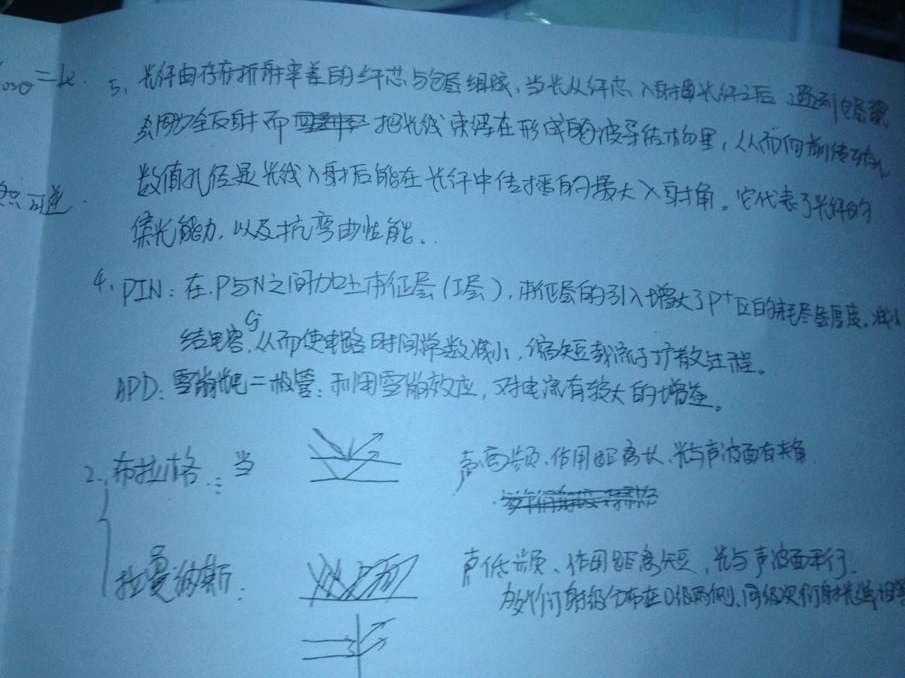 5、光纤由存在折射率差的纤芯与包层组成，当光从纤芯入射到光纤之后，遇到包层
会因为全反射而把光线束缚在形成的波导结构里，从而向前传播。
数值孔径是光线入射后能在光纤中传播的最大入射角。它代表了光纤的
集光能力，以及抗弯曲性能．
4、PIN：在P与N之间加上本征层（I层），本征层的引入增大了P⁺区的耗尽层厚度。减小
结电容Cj，从而使电路时间常数减小，缩短载流子扩散过程。
APD：雪崩光电二极管：利用雪崩效应，对电流有较大的增益。
2、布拉格：当
声高频、作用距离长、光与声波面有夹角
拉曼纳斯：
声低频、作用距离短，光与声波面平行．
各级衍射级分布在0级两侧、同级次衍射光强相等